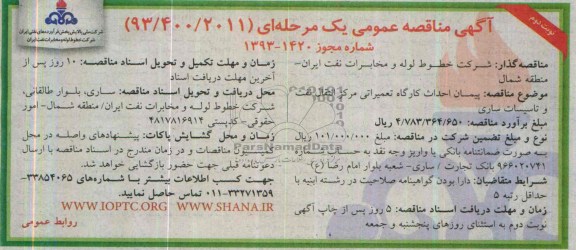 نوبت دوم
آگهی مناقصه عمومی یک مرحله‌ای (۹۳/۴۰۰/۲۰۱۱)
شماره مجوز ۱۴۲۰-۱۳۹۳
شرکت ملی پالایش و پخش فرآورده‌های نفتی ایران
شرکت خطوط لوله و مخابرات نفت ایران
مناقصه‌گذار: شرکت خطوط لوله و مخابرات نفت ایران-
منطقه شمال
موضوع مناقصه: پیمان احداث کارگاه تعمیراتی مرکز انتقال نفت
و تاسیسات ساری
مبلغ برآورد مناقصه: ۴/۷۸۳/۳۶۴/۶۵۰ ریال
نوع و مبلغ تضمین شرکت در مناقصه: ۱۰۱/۰۰۰/۰۰۰ ریال
به صورت ضمانتنامه بانکی یا واریز وجه نقد به حساب سیبا
۹۶۶۰۲۰۷۴۱ بانک تجارت / ساری- شعبه بلوار امام رضا (ع)
شرایط متقاضیان: دارا بودن گواهینامه صلاحیت در رشته ابنیه با
حداقل رتبه ۵
زمان و مهلت دریافت اسناد مناقصه: ۵ روز پس از چاپ آگهی
نوبت دوم به استثنای روزهای پنجشنبه و جمعه
زمان و مهلت تکمیل و تحویل اسناد مناقصه: ۱۰ روز پس از
آخرین مهلت دریافت اسناد
محل دریافت و تحویل اسناد مناقصه: ساری، بلوار طالقانی،
شرکت خطوط لوله و مخابرات نفت ایران/ منطقه شمال- امور
حقوقی- کدپستی ۴۸۱۷۸۱۶۹۱۴
زمان و محل گشایش پاکات: پیشنهادهای واصله در محل
کمیسیون مناقصات و در زمان مندرج در اسناد مناقصه با ارسال
دعوتنامه قبلی جهت حضور بازگشایی خواهد شد.
جهت کسب اطلاعات بیشتر با شماره‌های ۳۳۸۵۴۰۶۵-
۰۱۱-۳۳۲۷۱۳۵۹ تماس حاصل نمایید.
WWW.IOPTC.ORG WWW.SHANA.IR
روابط عمومی
ParsNamadData